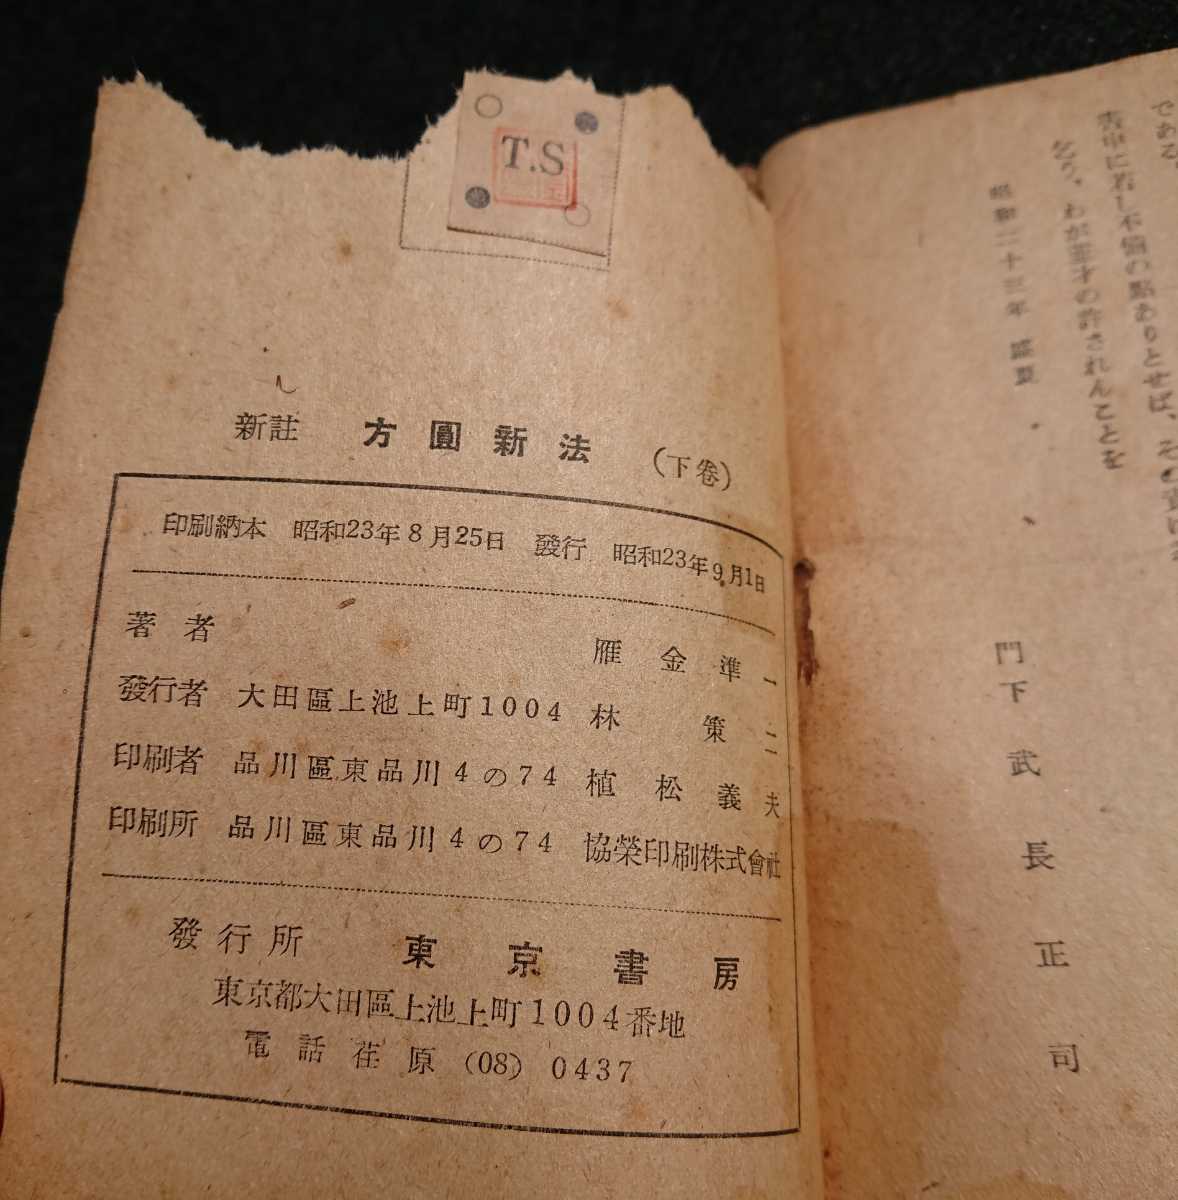 である
書中に若し不備の點ありとせば、その責は
乞う、わが菲才の許されんことを
昭和二十三年 盛夏
門下 武長正司
T.S
新註 方圓新法 (下卷)
印刷納本 昭和23年8月25日 發行 昭和23年9月1日
著者 雁金準一
發行者 大田區上池上町1004 林策二
印刷者 品川區東品川4の74 植松義夫
印刷所 品川區東品川4の74 協榮印刷株式會社
發行所 東京書房
東京都大田區上池上町1004番地
電話荏原(08)0437